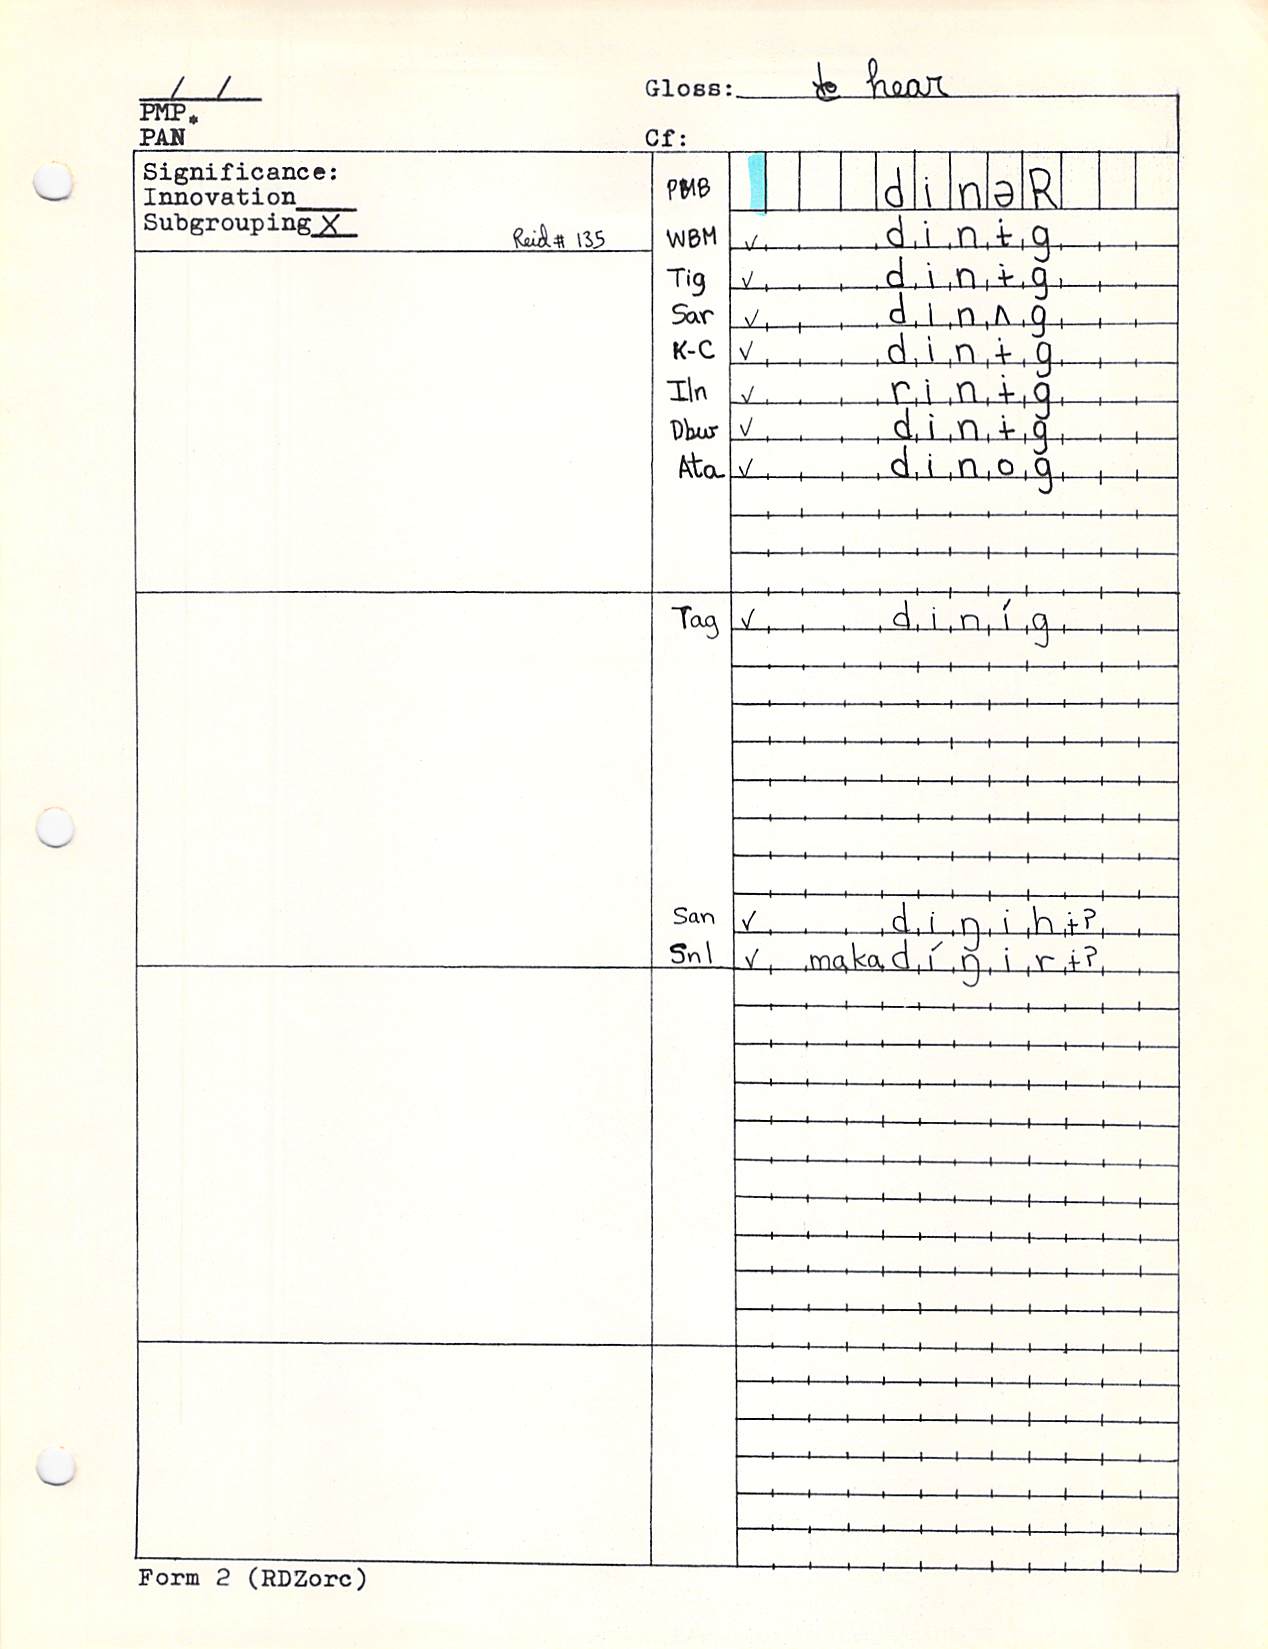 / /
Gloss: to hear
PMP.
PAN
Cf:
Significance:
Innovation
Subgrouping X
Reid # 135
PMB dinəR
WBM ✓ dinɨg
Tig ✓ dinɨg
Sar ✓ dinʌg
K-C ✓ dinɨg
Iln ✓ rinɨg
Dbw ✓ dinɨg
Ata ✓ dinog
Tag ✓ diníg
San ✓ diŋihɨʔ
Snl ✓ makadíŋirɨʔ
Form 2 (RDZorc)